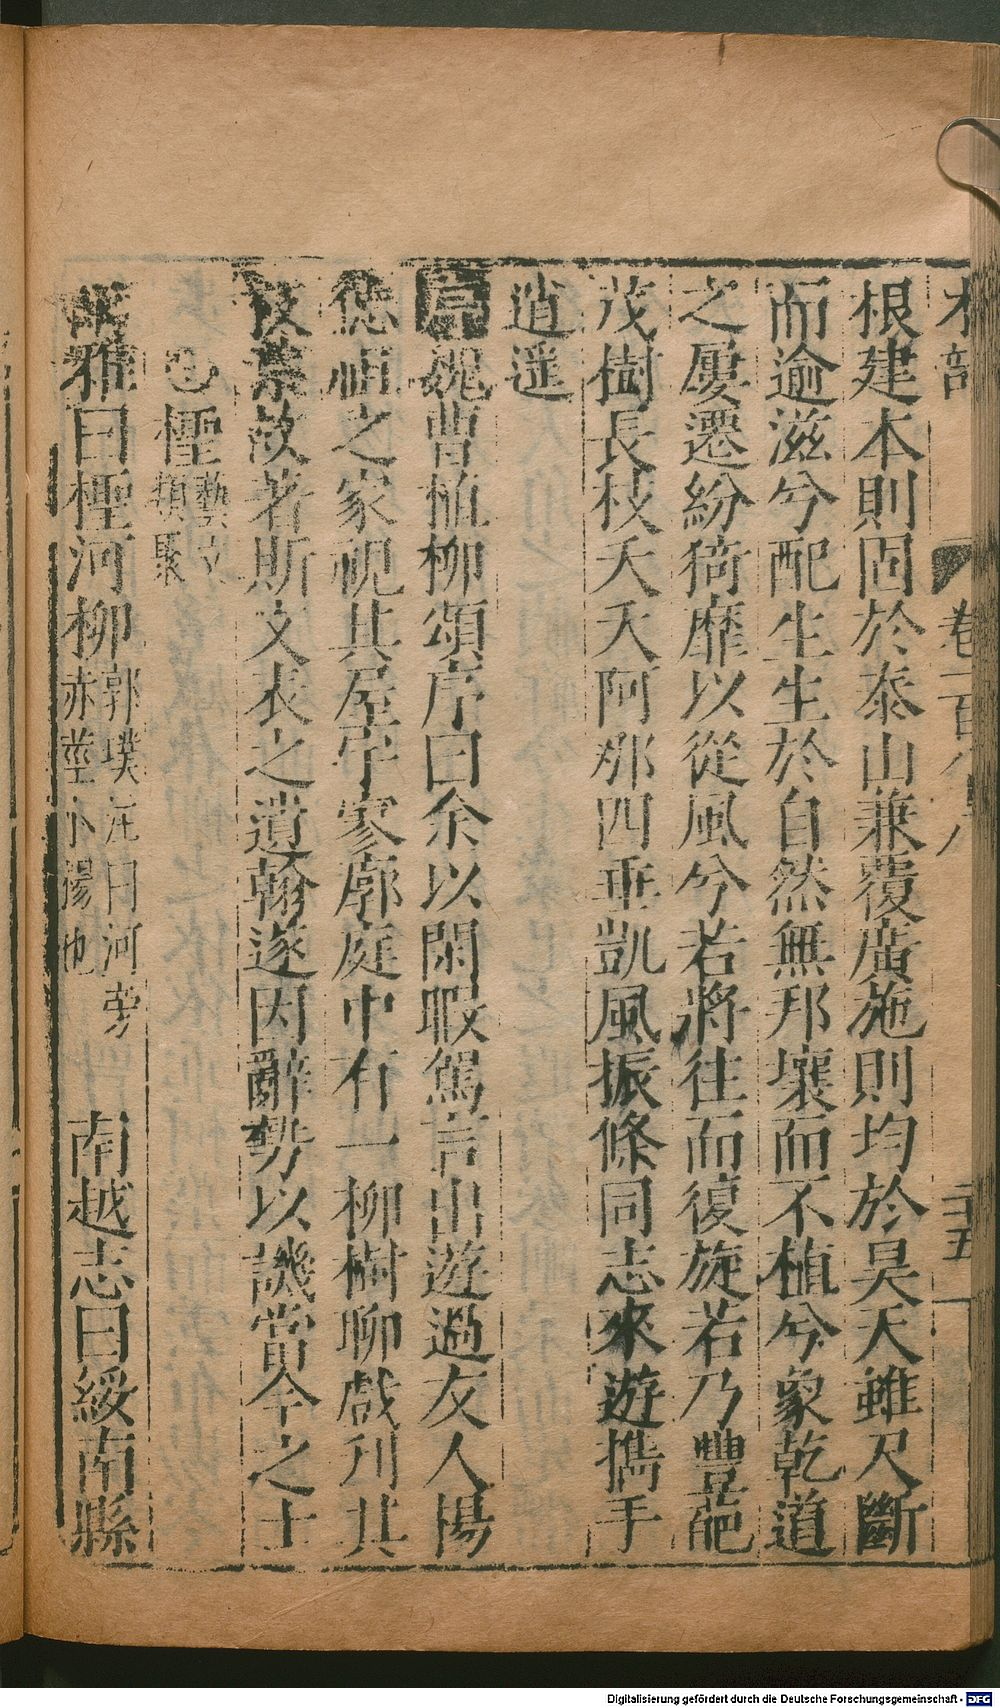 木部 卷一百八八 二五
根建本則固於泰山兼覆廣施則均於昊天雖尺斷
而逾滋兮配生生於自然無邦壤而不植兮象乾道
之屢遷紛猗靡以從風兮若將往而復旋若乃豐葩
茂樹長枝夭夭阿那四垂凱風振條同志來遊攜手
逍遥
魏曹植柳頌序曰余以閑暇駕言出遊過友人楊
德祖之家視其屋宇寥廓庭中有一柳樹聊戲刊其
枝葉故著斯文表之遺翰遂因辭勢以譏當今之士
檉藝文類聚
爾雅曰檉河柳郭璞注曰河旁赤莖小楊也 南越志曰綏南縣
Digitalisierung gefördert durch die Deutsche Forschungsgemeinschaft - DFG